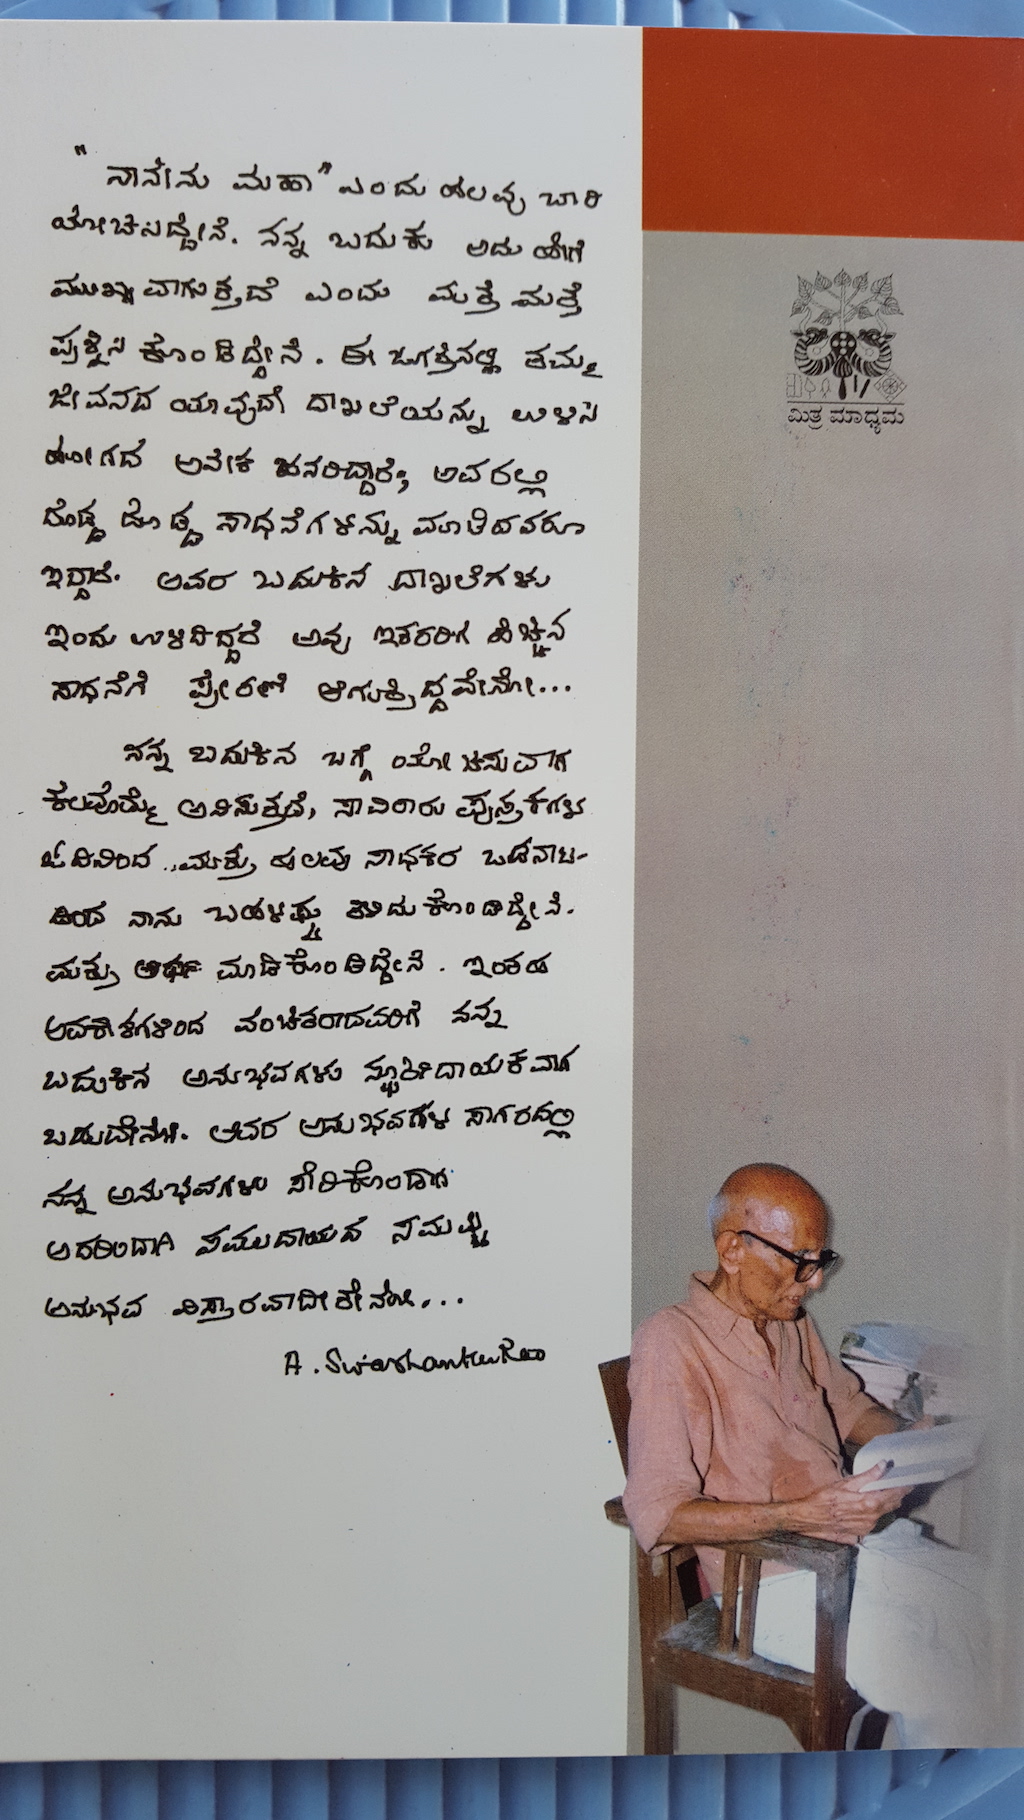 "ನಾನೇನು ಮಹಾ" ಎಂದು ಹಲವು ಬಾರಿ
ಯೋಚಿಸಿದ್ದೇನೆ. ನನ್ನ ಬದುಕು ಅದು ಹೇಗೆ
ಮುಖ್ಯವಾಗುತ್ತದೆ ಎಂದು ಮತ್ತೆ ಮತ್ತೆ
ಪ್ರಶ್ನಿಸಿ ಕೊಂಡಿದ್ದೇನೆ. ಈ ಜಗತ್ತಿನಲ್ಲಿ ತಮ್ಮ
ಜೀವನದ ಯಾವುದೇ ದಾಖಲೆಯನ್ನು ಉಳಿಸಿ
ಹೋಗದ ಅನೇಕ ಜನರಿದ್ದಾರೆ; ಅವರಲ್ಲಿ
ದೊಡ್ಡ ದೊಡ್ಡ ಸಾಧನೆಗಳನ್ನು ಮಾಡಿದವರೂ
ಇದ್ದಾರೆ. ಅವರ ಬದುಕಿನ ದಾಖಲೆಗಳು
ಇಂದು ಉಳಿದಿದ್ದರೆ ಅವು ಇತರರಿಗೆ ಹೆಚ್ಚಿನ
ಸಾಧನೆಗೆ ಪ್ರೇರಣೆ ಆಗುತ್ತಿದ್ದವೇನೋ...
ನನ್ನ ಬದುಕಿನ ಬಗ್ಗೆ ಯೋಚಿಸುವಾಗ
ಕೆಲವೊಮ್ಮೆ ಅನಿಸುತ್ತದೆ, ಸಾವಿರಾರು ಪುಸ್ತಕಗಳ
ಓದಿನಿಂದ ..ಮತ್ತು ಹಲವು ಸಾಧಕರ ಒಡನಾಟ-
ದಿಂದ ನಾನು ಬಹಳಷ್ಟು ತಿಳಿದುಕೊಂಡಿದ್ದೇನೆ.
ಮತ್ತು ಅರ್ಥ ಮಾಡಿಕೊಂಡಿದ್ದೇನೆ. ಇಂತಹ
ಅವಕಾಶಗಳಿಂದ ವಂಚಿತರಾದವರಿಗೆ ನನ್ನ
ಬದುಕಿನ ಅನುಭವಗಳು ಸ್ಫೂರ್ತಿದಾಯಕವಾಗ
ಬಹುದೇನೋ. ಅವರ ಅನುಭವಗಳ ಸಾಗರದಲ್ಲಿ
ನನ್ನ ಅನುಭವಗಳು ಸೇರಿಕೊಂಡಾಗ
ಅದರಿಂದಾಗಿ ಸಮುದಾಯದ ಸಮಷ್ಟಿ
ಅನುಭವ ವಿಸ್ತಾರವಾದೀತೇನೋ...
A. Shivashankar Rao
ಮಿತ್ರ ಮಾಧ್ಯಮ